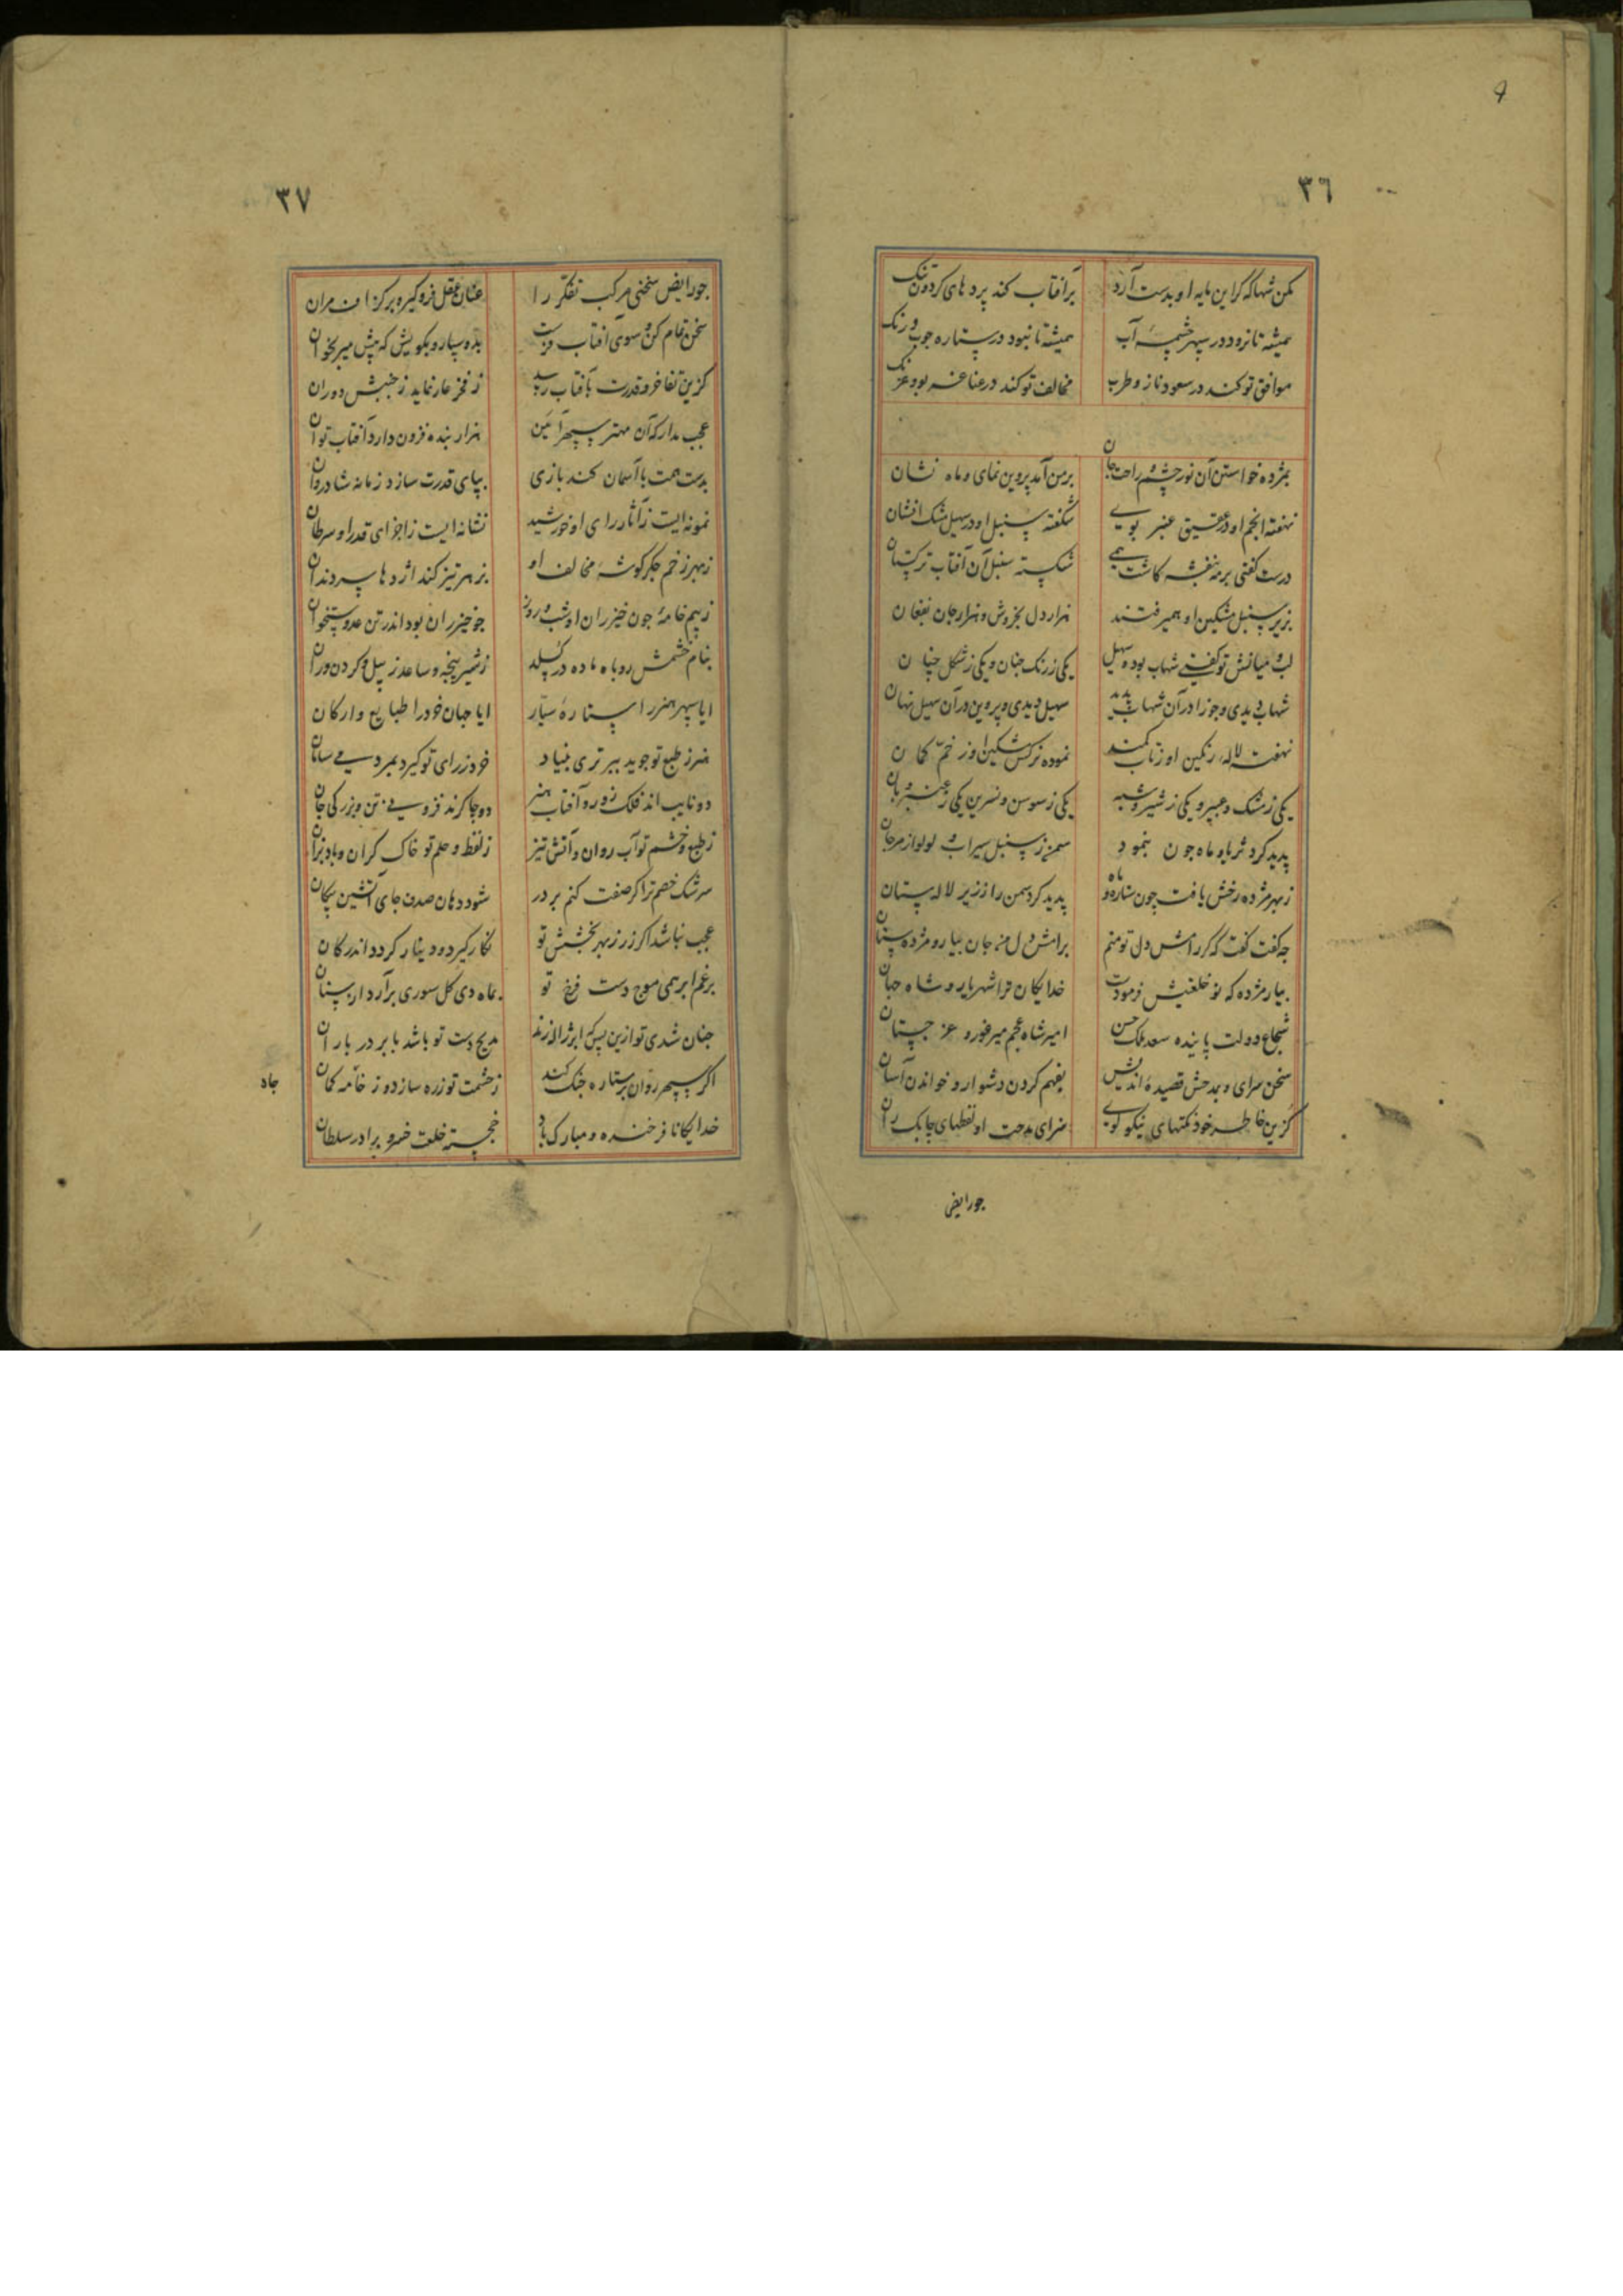 9
٣٦
مکن شها که کر این مایه او بدست آرد برآفتاب کند پردهای کردون تنک
همیشه تا نرود در سپهر چشمهٔ آب همیشه تا نبود در ستاره جوب و رنک
موافق تو کند در سعود ناز و طرب مخالف تو کند در عنا غریو و غرنک
بمژده خواستن آن نور چشم و راحت جان بر من آمد پروین نمای و ماه نشان
نهفته انجم او در عقیق عنبر بوی شکفته سنبل او در سهیل مشک افشان
درست کفتی بر مه بنفشه کاشت همی شکسته سنبل آن آفتاب ترکستان
بزیر سنبل مشکین او همیرفتند هزار دل بخروش و هزار جان بفغان
لب و میانش تو کفتی شهاب بود و سهیل یکی ز رنک جنان و یکی ز شکل چنان
شهاب دیدی و جوزا در آن شهاب پدید سهیل دیدی و پروین در آن سهیل نهان
نهفته لاله رنکین او ز تاب کمند نموده نرکس مشکین او ز خم کمان
یکی ز مشک و عبیر و یکی ز شیر و شبه یکی ز سوسن و نسرین یکی ز عنبر و بان
پدید کرد ثریا و ماه جون بنمود سمن ز سنبل سیراب و لولو از مرجان
ز بهر مژده رخش یافت چون ستاره و ماه پدید کرد سمن را ز زیر لاله ستان
چه کفت کفت که کر رامش دل تو منم برامش دل من جان بیار و مژده ستان
بیار مژده که نو خلعتیش فرمودست خدایکان ترا شهریار و شاه جهان
شجاع دولت پاینده سعد ملک حسن امیر شاه عجم میر فور و غرجستان
سخن سرای و بمدحش قصیدهٔ اندیش بفهم کردن دشوار و خواندن آسان
کزین خاطر خود نکتهای نیکو کوی سرای مدحت او لفظهای چابک ران
جو رایض
٣٧
جو رایض سخنی مرکب تفکر را عنان عقل فرو کیر و بر کزاف مران
سخن تمام کن و سوی آفتاب فرست بده سپار و بکویش که پیش میر بخوان
کزین تفاخر و قدرت بآفتاب رسد ز فخر عار نماید ز جنبش دوران
عجب مدار که آن مهتر سپهر آئین هزار بنده فزون دارد آفتاب توان
بدست همت با آسمان کند بازی بپای قدرت سازد زمانه شادروان
نمونه ایست ز آثار رای او خورشید نشانه ایست ز اجزای قدر او سرطان
ز بهر زخم جکر کوشهٔ مخالف او بزهر تیز کند اژدها سر دندان
ز بیم خامهٔ جون خیزران او شب و روز جو خیزران بود اندر تن عدو ستخوان
بنام خشمش روباه ماده در کسلد ز شیر پنجه و ساعد ز پیل و کردن وران
ایا سپهر هنر را ستارهٔ سیار ایا جهان خود را طبایع و ارکان
هنر ز طبع تو جوید ببرتری بنیاد خود ز رای تو کیرد بمردمی سامان
دو نایب اند فلک زور و آفتاب هنر دو چاکرند فزونی تن و بزرکی جان
ز طبع و خشم تو آب روان و آتش تیز ز لفظ و حلم تو خاک کران و باد بزان
سرشک خصم ترا کر صفت کنم بر در شود دهان صدف جای آتشین پیکان
عجب نباشد اکر زر ز بهر بخشش تو نکار کیرد و دینار کردد اندر کان
برغم ابر همی موج دست فرخ تو بماه دی کل سوری برآرد از بستان
جنان شدی تو ازین پس که ابر ژاله زند مدیح دست تو باشد بابر در باران
اکر سپهر روان بر ستاره جنک کند ز حشمت تو زره سازد و ز خامه کمان
خدایکانا فرخنده و مبارک باد خجسته خلعت خسرو برادر سلطان
جاه